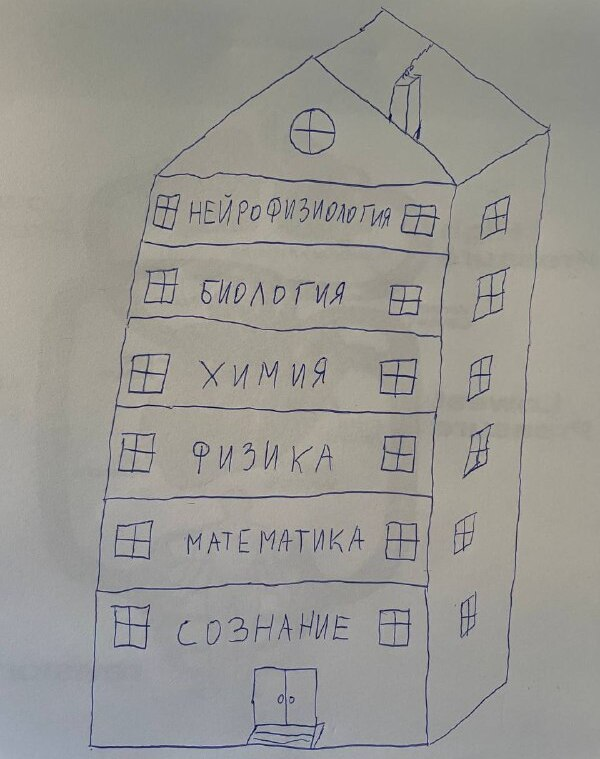 НЕЙРОФИЗИОЛОГИЯ
БИОЛОГИЯ
ХИМИЯ
ФИЗИКА
МАТЕМАТИКА
СОЗНАНИЕ